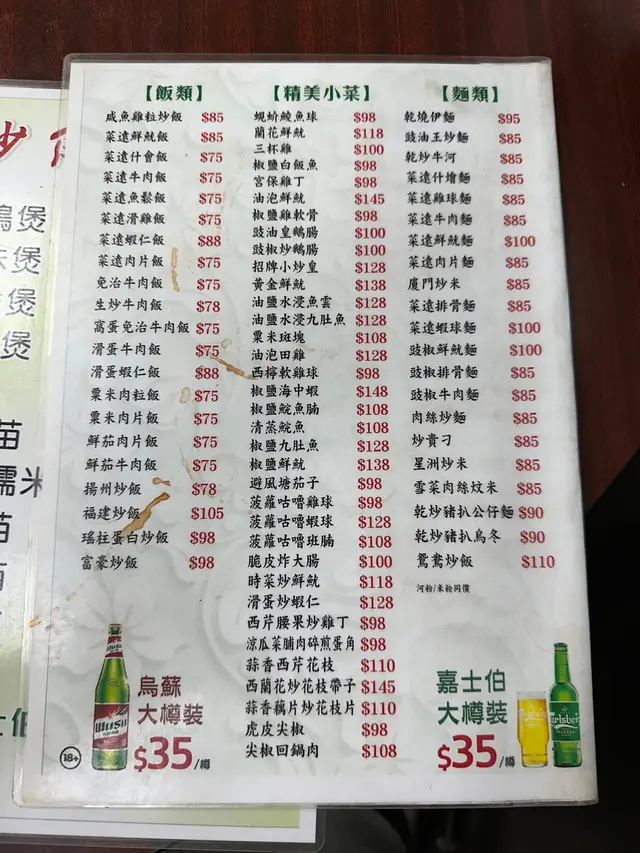 【飯類】
咸魚雞粒炒飯 $85
菜遠鮮魷飯 $85
菜遠什會飯 $75
菜遠牛肉飯 $75
菜遠魚鬆飯 $75
菜遠滑雞飯 $75
菜遠蝦仁飯 $88
菜遠肉片飯 $75
免治牛肉飯 $75
生炒牛肉飯 $78
窩蛋免治牛肉飯 $75
滑蛋牛肉飯 $75
滑蛋蝦仁飯 $88
粟米肉粒飯 $75
粟米肉片飯 $75
鮮茄肉片飯 $75
鮮茄牛肉飯 $75
揚州炒飯 $78
福建炒飯 $105
瑤柱蛋白炒飯 $98
富豪炒飯 $98
【精美小菜】
蜆蚧鯪魚球 $98
蘭花鮮魷 $118
三杯雞 $100
椒鹽白飯魚 $98
宮保雞丁 $98
油泡鮮魷 $145
椒鹽雞軟骨 $98
豉油皇鵝腸 $100
豉椒炒鵝腸 $100
招牌小炒皇 $128
黃金鮮魷 $138
油鹽水浸魚雲 $128
油鹽水浸九肚魚 $128
粟米斑塊 $108
油泡田雞 $128
西檸軟雞球 $98
椒鹽海中蝦 $148
椒鹽鯇魚腩 $108
清蒸鯇魚 $108
椒鹽九肚魚 $128
椒鹽鮮魷 $138
避風塘茄子 $98
菠蘿咕嚕雞球 $98
菠蘿咕嚕蝦球 $128
菠蘿咕嚕班腩 $108
脆皮炸大腸 $100
時菜炒鮮魷 $118
滑蛋炒蝦仁 $128
西芹腰果炒雞丁 $98
涼瓜菜脯肉碎煎蛋角 $98
蒜香西芹花枝 $110
西蘭花炒花枝帶子 $145
蒜香藕片炒花枝片 $110
虎皮尖椒 $98
尖椒回鍋肉 $108
【麵類】
乾燒伊麵 $95
豉油王炒麵 $85
乾炒牛河 $85
菜遠什燴麵 $85
菜遠雞球麵 $85
菜遠牛肉麵 $85
菜遠鮮魷麵 $100
菜遠肉片麵 $85
廈門炒米 $85
菜遠排骨麵 $85
菜遠蝦球麵 $100
豉椒鮮魷麵 $100
豉椒排骨麵 $85
豉椒牛肉麵 $85
肉絲炒麵 $85
炒貴刁 $85
星洲炒米 $85
雪菜肉絲炆米 $85
乾炒豬扒公仔麵 $90
乾炒豬扒烏冬 $90
鴛鴦炒飯 $110
河粉/米粉同價
烏蘇
大樽裝
$35/樽
18+
Wusu
嘉士伯
大樽裝
$35/樽
Carlsberg
炒
煲
煲
煲
煲
苗
糯米
苗